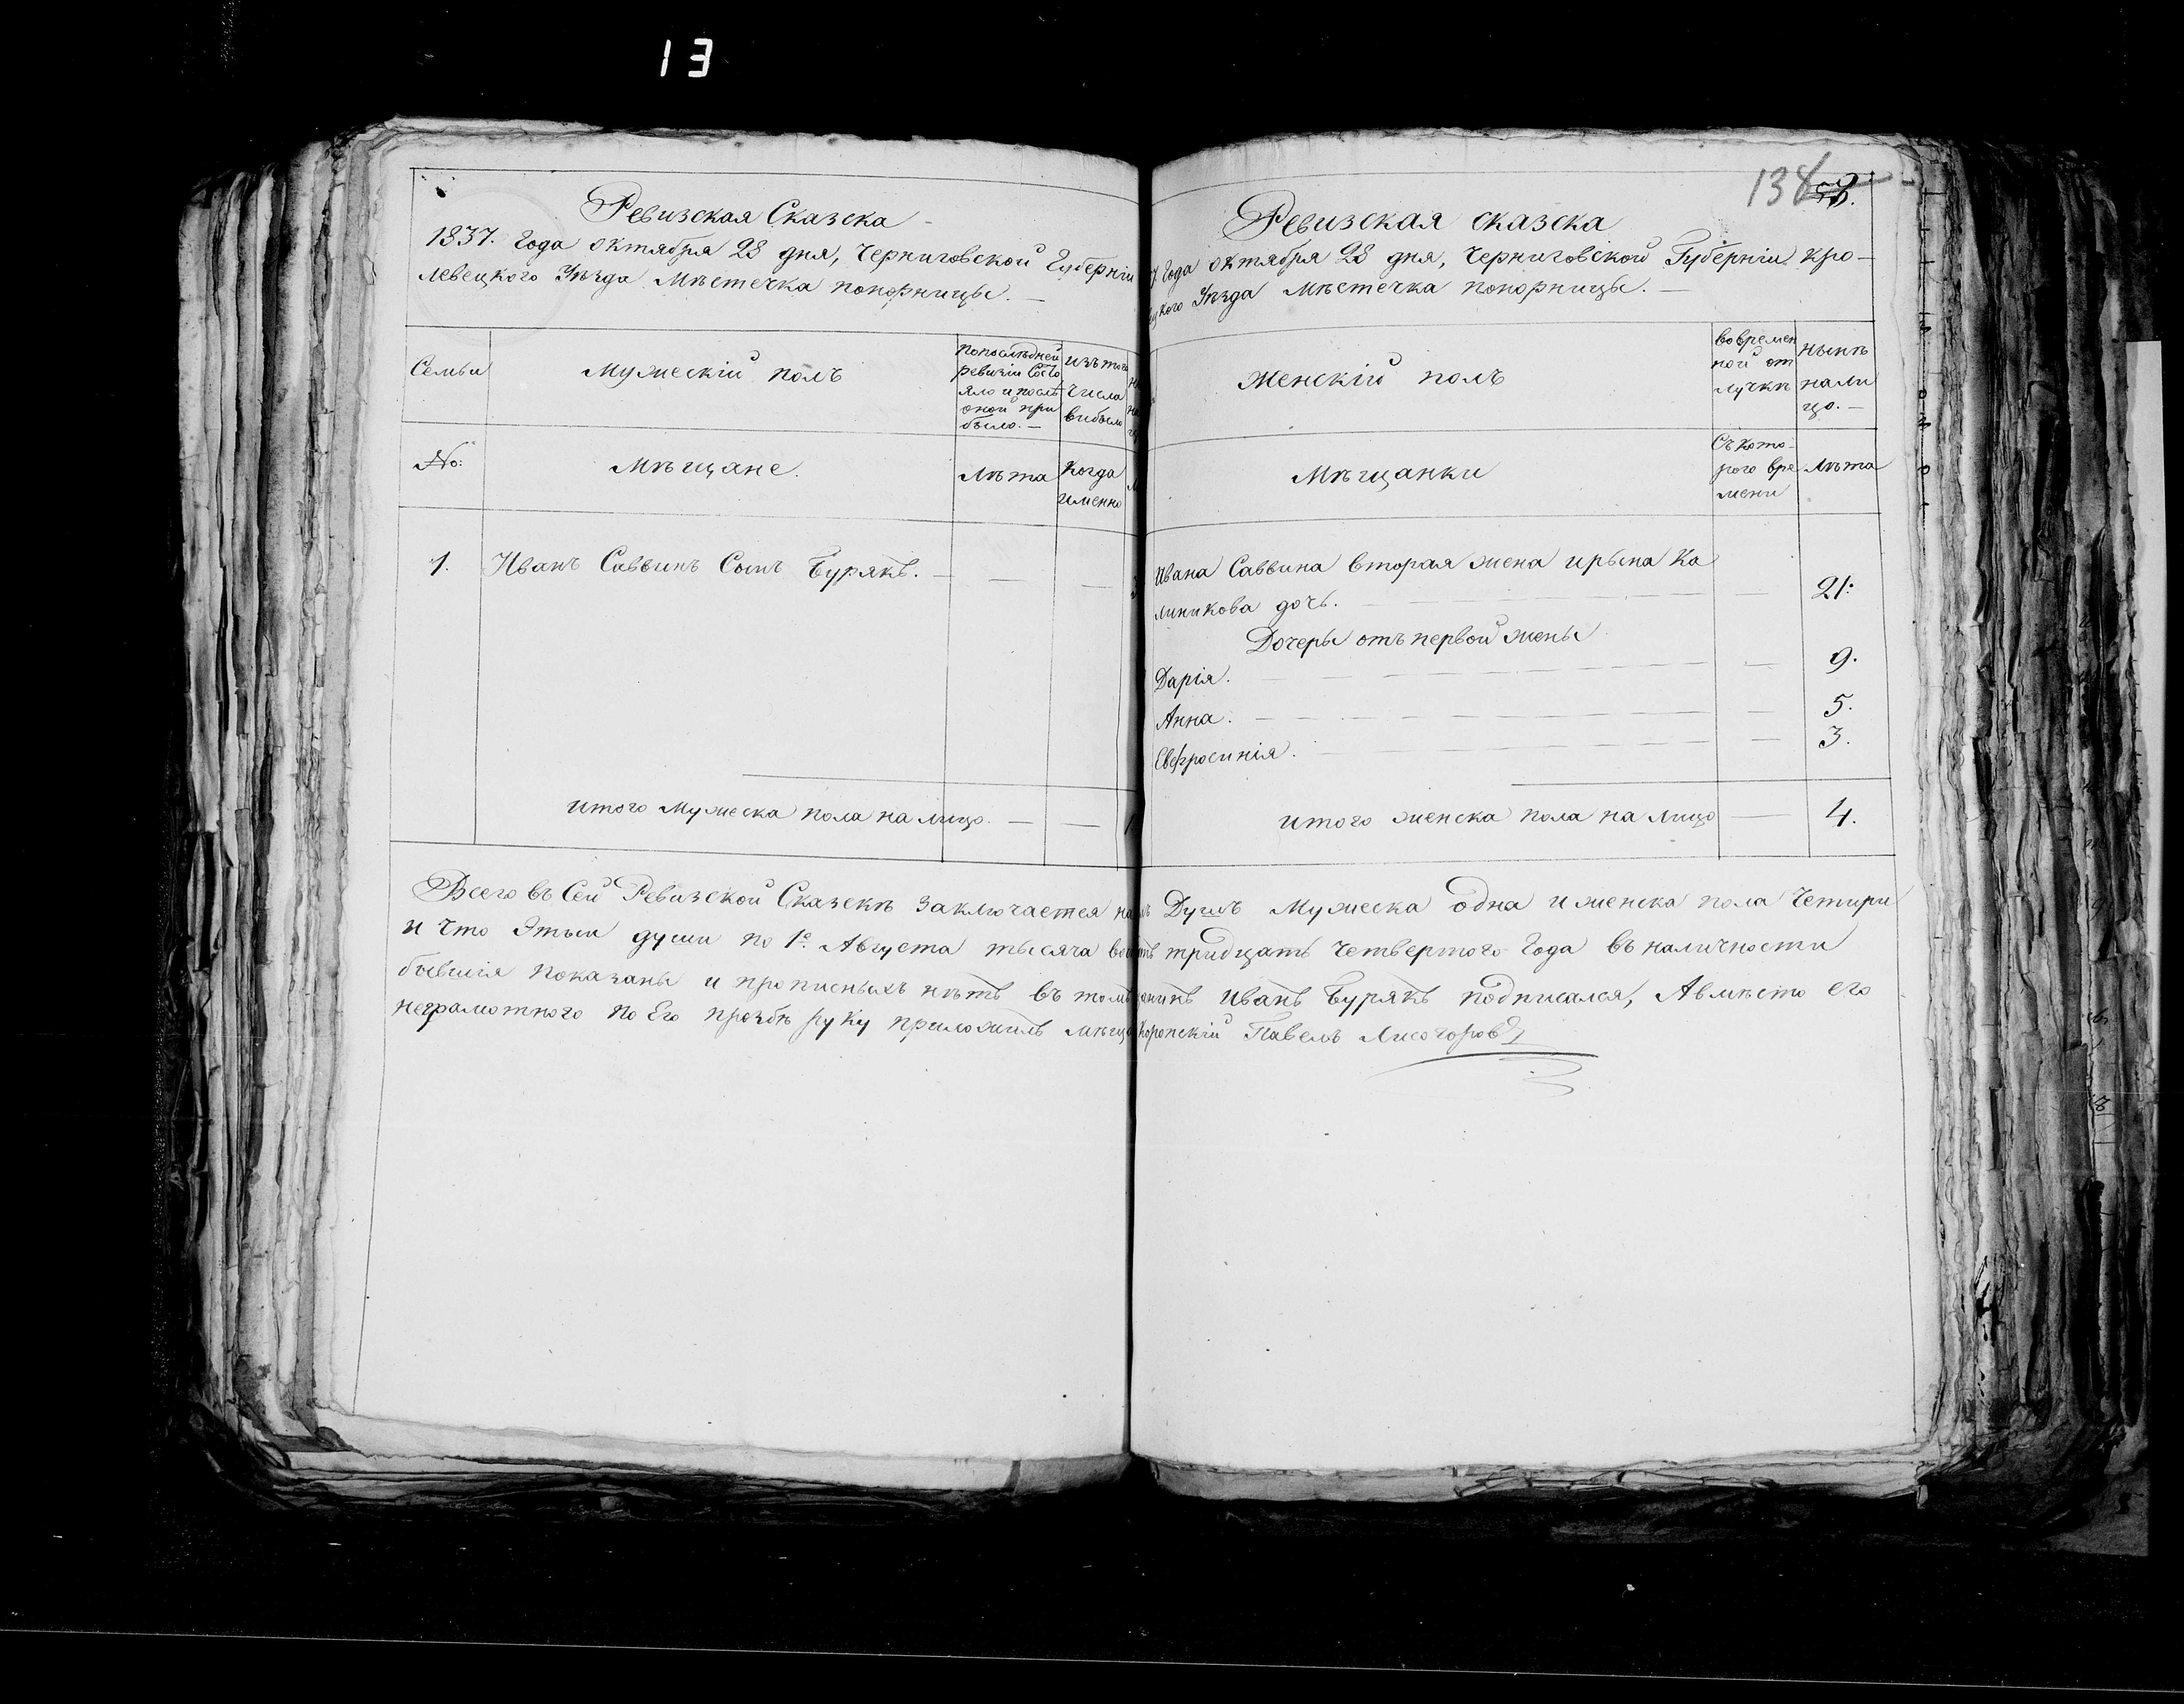 13
Ревизская Сказска
1837. Года октября 28 дня, Черниговской Губерніи
левецкого Уѣзда Мѣстечка понорницы. —
Семьи
Мужескій полъ
попослѣдней
ревизіи Состо
яло и послѣ
оной при
было. —
изъ того
Числа
выбыло
No:
Мѣщане.
Лѣта
Когда
именно
1. Иванъ Саввинъ Сынъ Бурякъ. — — —
итого Мужеска пола на лицо. — — 1
138
Ревизская сказска
Года октября 28 дня, Черниговской Губерніи Кро-
Уѣзда Мѣстечка понорницы. —
Женскій полъ
вовремен
ной от
лучкѣ
нынѣ
нали
цо. —
Мѣщанки
Съкото-
рого вре
мени
Лѣта
Ивана Саввина вторая жена ирына Ка
линикова дочь. — — 21:
Дочеры отъ первой жены
Дарія. — — 9.
Анна. — — 5.
Евфросинія. — — 3.
итого женска пола на лицо — 4.
Всего въ Сей Ревизской Сказскѣ заключается Душъ Мужеска одна и женска пола Четыри
и Что Этыи души по 1е Августа тысяча тридцать Четвертого Года въ наличности
бывшія показаны и прописныхъ нѣтъ въ томъ Иванъ Бурякъ подписался, Авмѣсто его
неграмотного по Его прозбѣ руку приложилъ Коропскій Павелъ Лисогоров